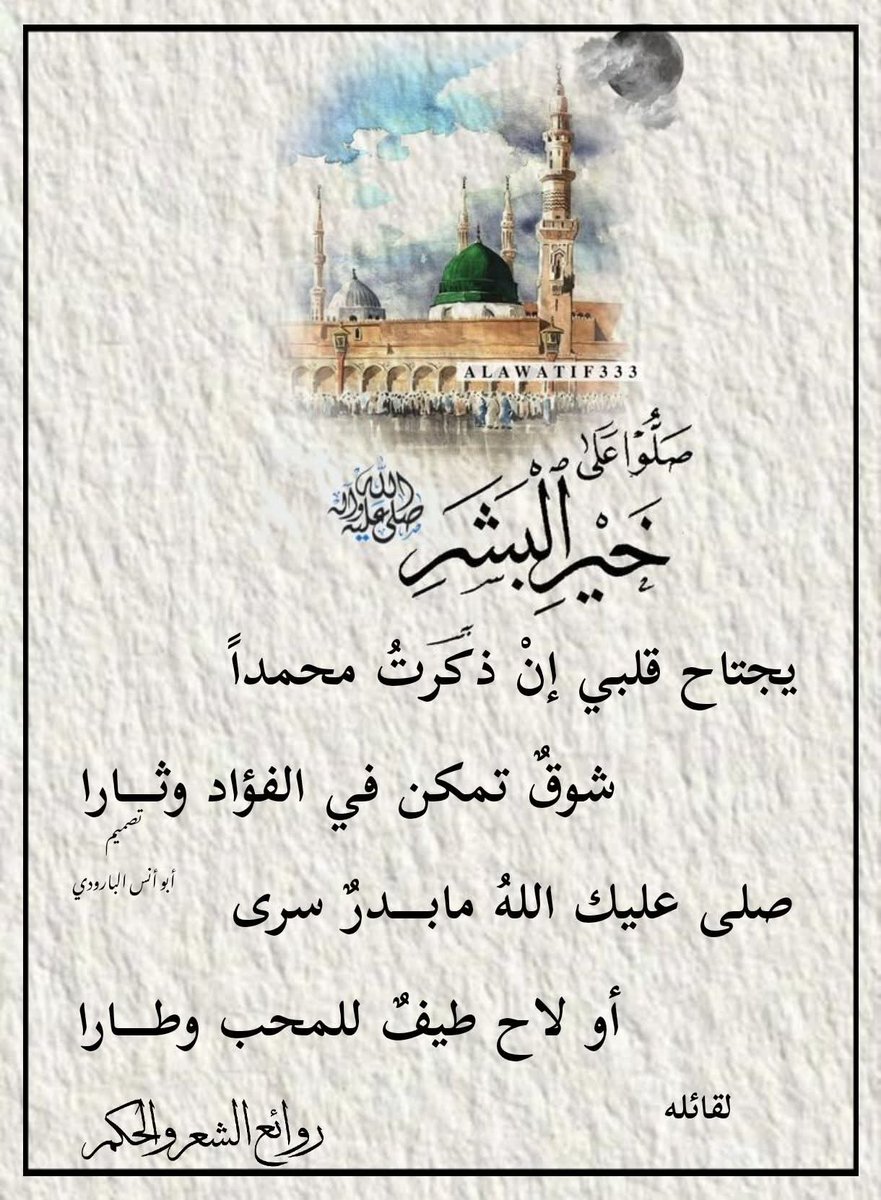 ALAWATIF333
صَلُّوْا عَلَىٰ
خَيْرِ الْبَشَرِ
صلى الله عليه وآله
يجتاح قلبي إنْ ذكَّرَتُ محمداً
شوقٌ تمكن في الفؤاد وثـــارا
تصميم
أبو أنس البارودي
صلى عليك اللهُ مابـــدرٌ سرى
أو لاح طيفٌ للمحب وطـــارا
لقائله
روائع الشعر والحكم